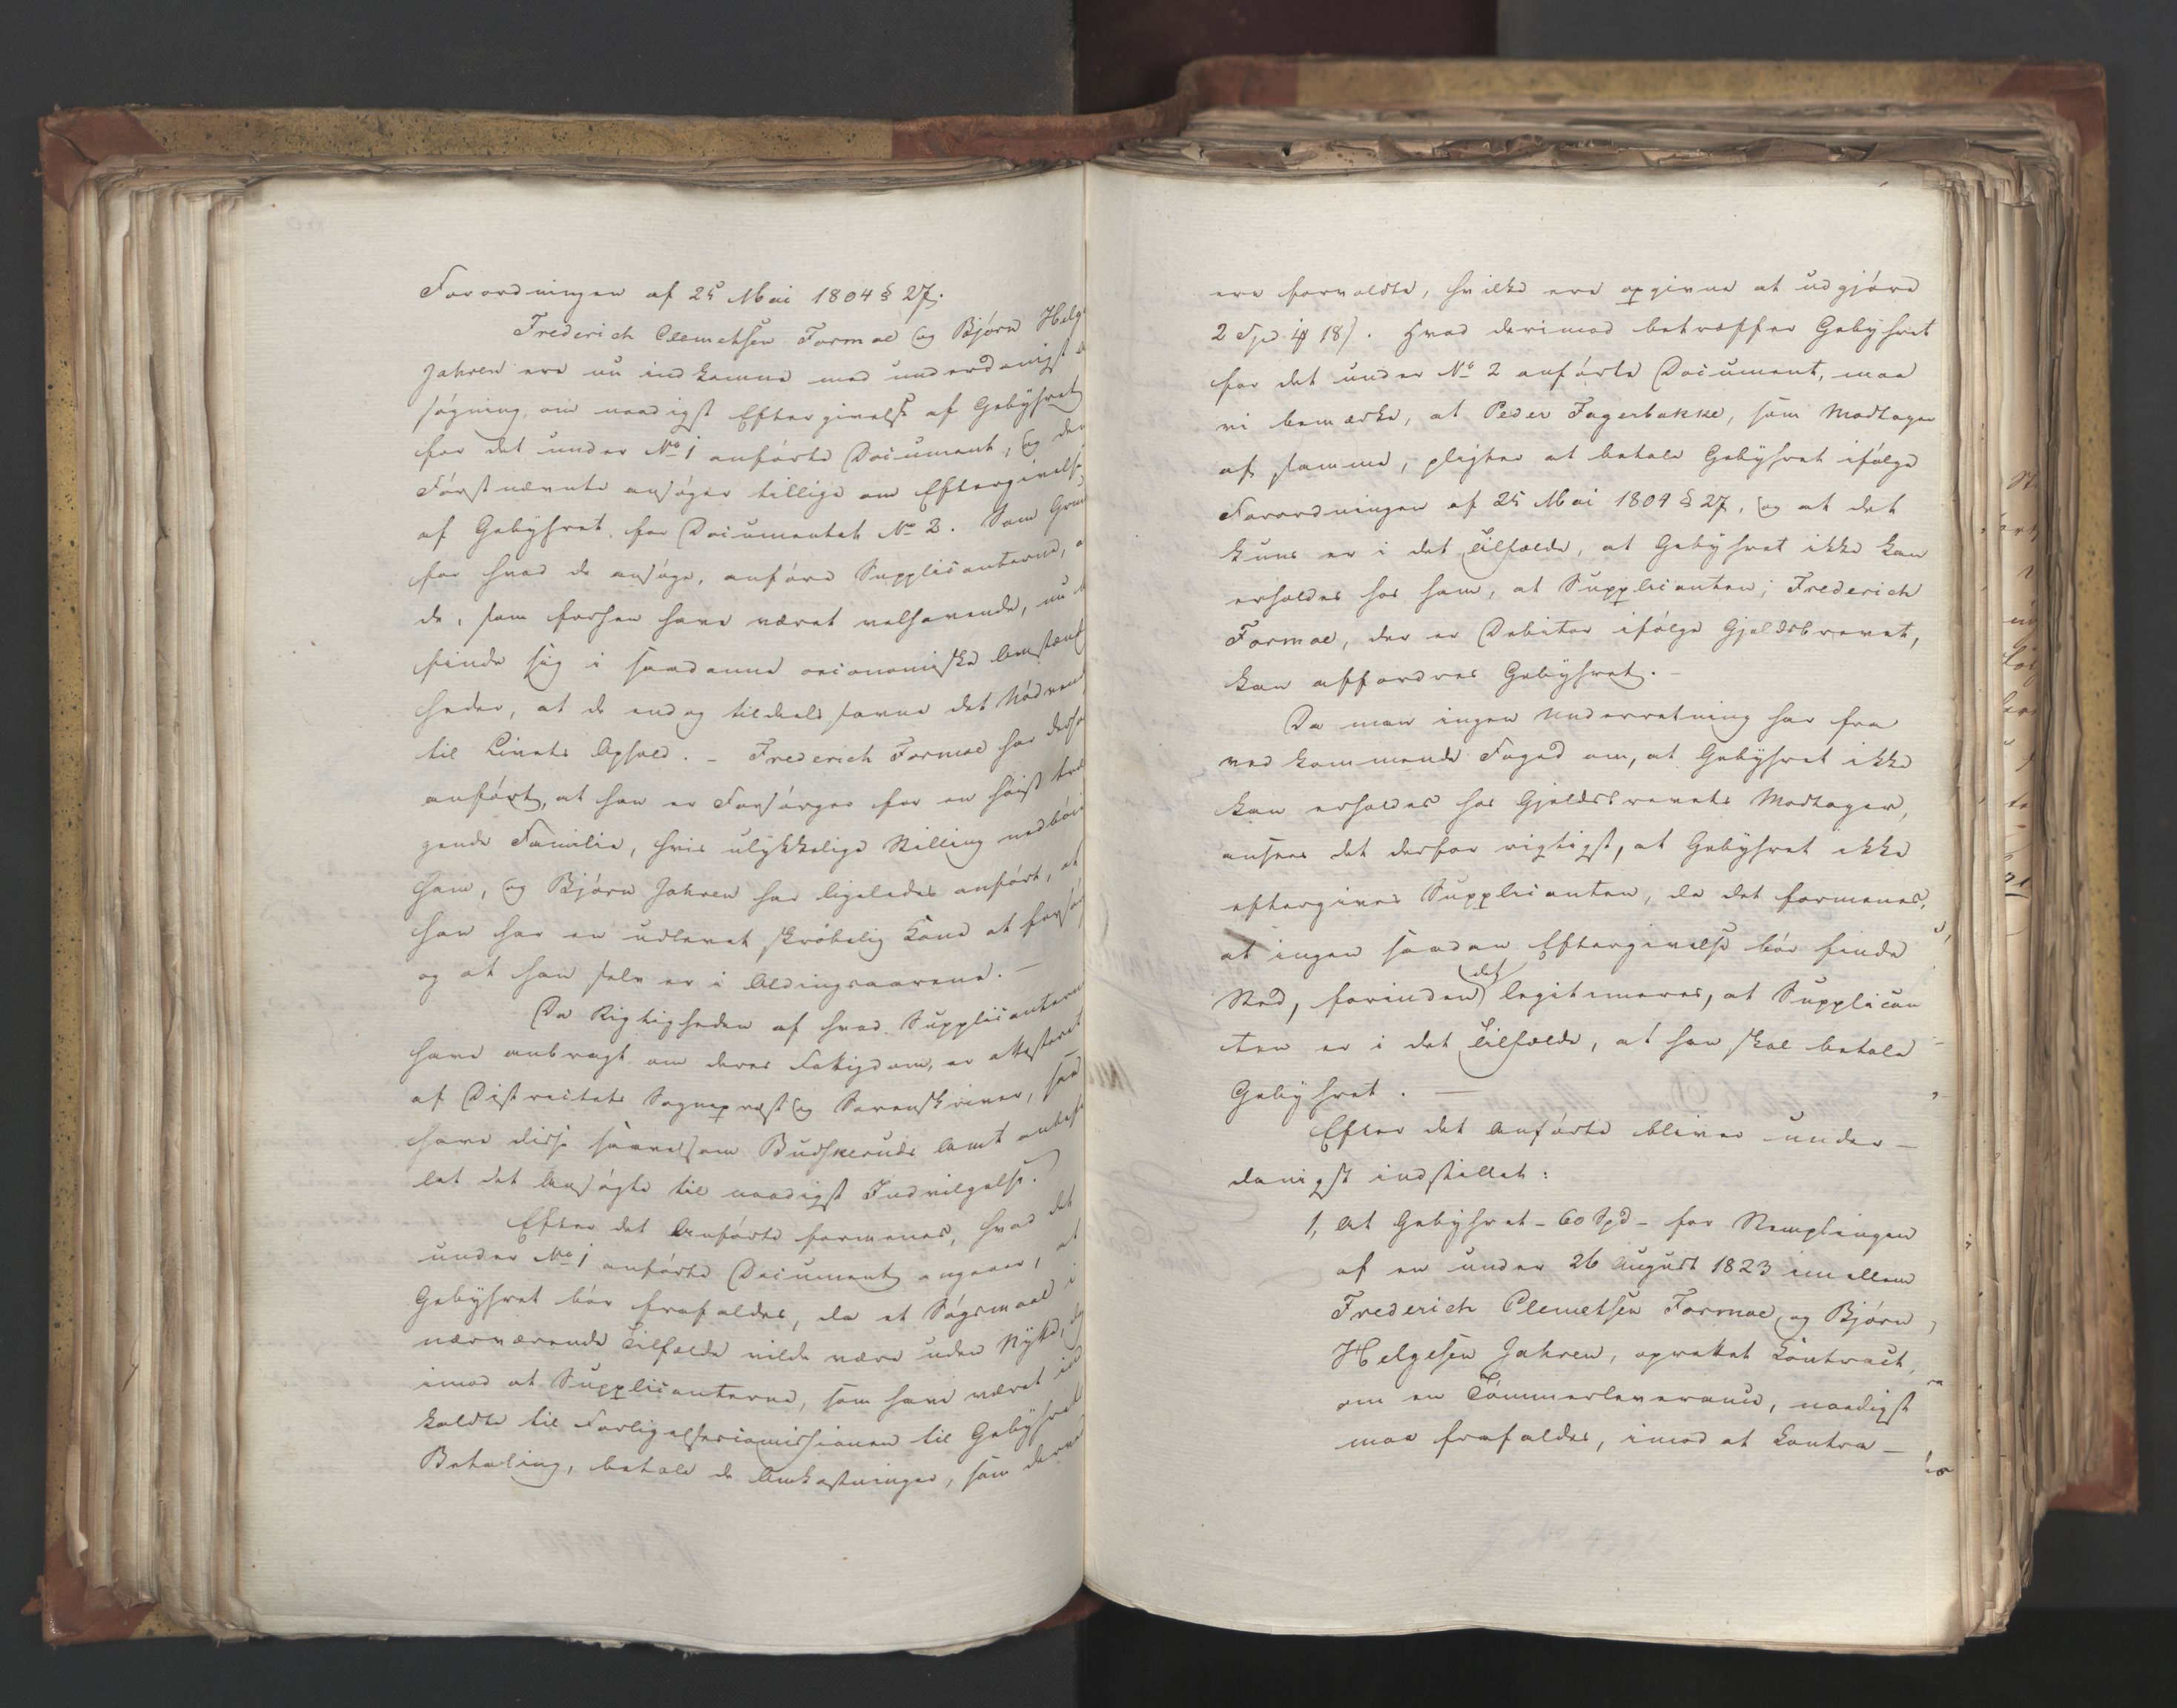 Forordningen af 25 Mai 1804 § 27.
Frederich Clemetsen Formoe og Bjørn Helge
Jahren ere nu indkomne med underdanigst
søgning om naadigst Eftergivelse af Gebyhret
for det under No 1 anførte Document, og den
Førstnævnte ansøger tillige om Eftergivelse
af Gebyhret for Documentet No 2. Som Grun
for hvad de ansøge, anføre Supplicanterne, a
de, som forhen have været velhavende, nu
finde sig i saadanne oeconomiske Omstænd
heder, at de endog tildeels savne det Nødven
til Livets Ophold. - Frederich Formoe har derho
anført, at han er Forsørger for en høist træ
gende Familie, hvis ulykkelige Stilling nedbøi
ham, og Bjørn Jahren har ligeledes anført, at
han har en udlevet skrøbelig Kone at forsør
og at han selv er i Aldingsaarene. -
Da Rigtigheden af hvad Supplicanterne
have anbragt om deres Fattigdom, er attesteret
af Districtets Sognepræst og Sorenskriver, saa
have disse saavelsom Budskeruds Amt anbefa
let det Ansøgte til naadigst Indvilgelse.
Efter det Anførte formenes, hvad det
under No 1 anførte Document angaaer, at
Gebyhret bør frafaldes, da et Søgsmaal i
nærværende Tilfælde vilde være uden Nytte, og
imod at Supplicanterne, som have været ind
kaldte til Forligelsescomissionen til Gebyhrets
Betaling, betale de Omkostninger, som derved
ere forvoldte, hvilke ere opgivne at udgjøre
2 Spd 18 ß. Hvad derimod betræffer Gebyhret
for det under No 2 anførte Document, maa
vi bemærke, at Peder Fagerbakke, som Modtager
af samme, pligter at betale Gebyhret ifølge
Forordningen af 25 Mai 1804 § 27, og at det
kuns er i det Tilfælde, at Gebyhret ikke kan
erholdes hos ham, at Supplicanten, Frederich
Formoe, der er Debitor ifølge Gjeldsbrevet,
kan affordres Gebyhret. -
Da man ingen Underretning har fra
vedkommende Foged om, at Gebyhret ikke
kan erholdes hos Gjeldsbrevets Modtager,
ansees det derfor rigtigst, at Gebyhret ikke
eftergives Supplicanten, da det formenes,
at ingen saadan Eftergivelse bør finde
Sted, forinden det legitimeres, at Supplican
ten er i det Tilfælde, at han skal betale
Gebyhret. -
Efter det Anførte bliver under-
danigst indstillet:
1, At Gebyhret - 60 Spd - for Stemplingen
af en under 26 August 1823 imellem
Frederich Clemetsen Formoe og Bjørn
Helgesen Jahren, oprettet Contract,
om en Tømmerleverance, naadigst
maa frafaldes, imod at Contra-